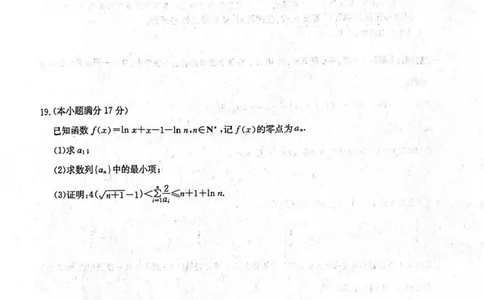 19.(本小题满分 17 分)
已知函数 f(x)=ln x+x-1-ln n,n∈N*,记 f(x)的零点为 aₙ.
(1)求 a₁;
(2)求数列{aₙ}中的最小项;
(3)证明:4(√(n+1)-1)<∑ⁿᵢ₌₁ 2/aᵢ≤n+1+ln n.